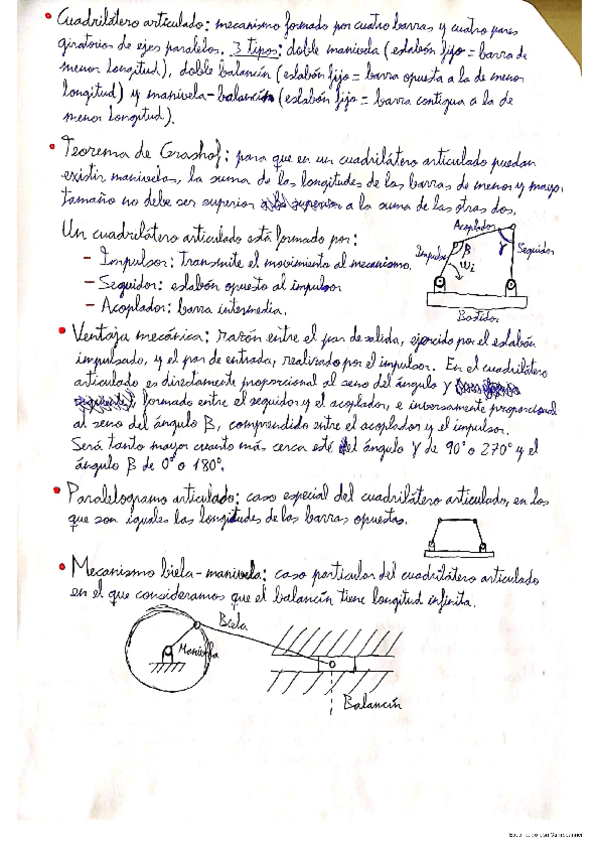 • Cuadrilátero articulado: mecanismo formado por cuatro barras y cuatro pares
giratorios de ejes paralelos. 3 tipos: doble manivela (eslabón fijo = barra de
menor longitud), doble balancín (eslabón fijo = barra opuesta a la de menor
longitud) y manivela-balancín (eslabón fijo = barra contigua a la de
menor longitud).
• Teorema de Grashof: para que en un cuadrilátero articulado puedan
existir manivelas, la suma de las longitudes de las barras de menor y mayor
tamaño no debe ser superior a la suma de las otras dos.
Un cuadrilátero articulado está formado por:
– Impulsor: transmite el movimiento al mecanismo.
– Seguidor: eslabón opuesto al impulsor
– Acoplador: barra intermedia.
Acoplador
Impulsor β γ Seguidor
ωi
Bastidor
• Ventaja mecánica: razón entre el par de salida, ejercido por el eslabón
impulsado, y el par de entrada, realizado por el impulsor. En el cuadrilátero
articulado es directamente proporcional al seno del ángulo γ
formado entre el seguidor y el acoplador, e inversamente proporcional
al seno del ángulo β, comprendido entre el acoplador y el impulsor.
Será tanto mayor cuanto más cerca esté el ángulo γ de 90° o 270° y el
ángulo β de 0° o 180°.
• Paralelogramo articulado: caso especial del cuadrilátero articulado, en los
que son iguales las longitudes de las barras opuestas.
• Mecanismo biela-manivela: caso particular del cuadrilátero articulado
en el que consideramos que el balancín tiene longitud infinita.
Biela
Manivela
Balancín